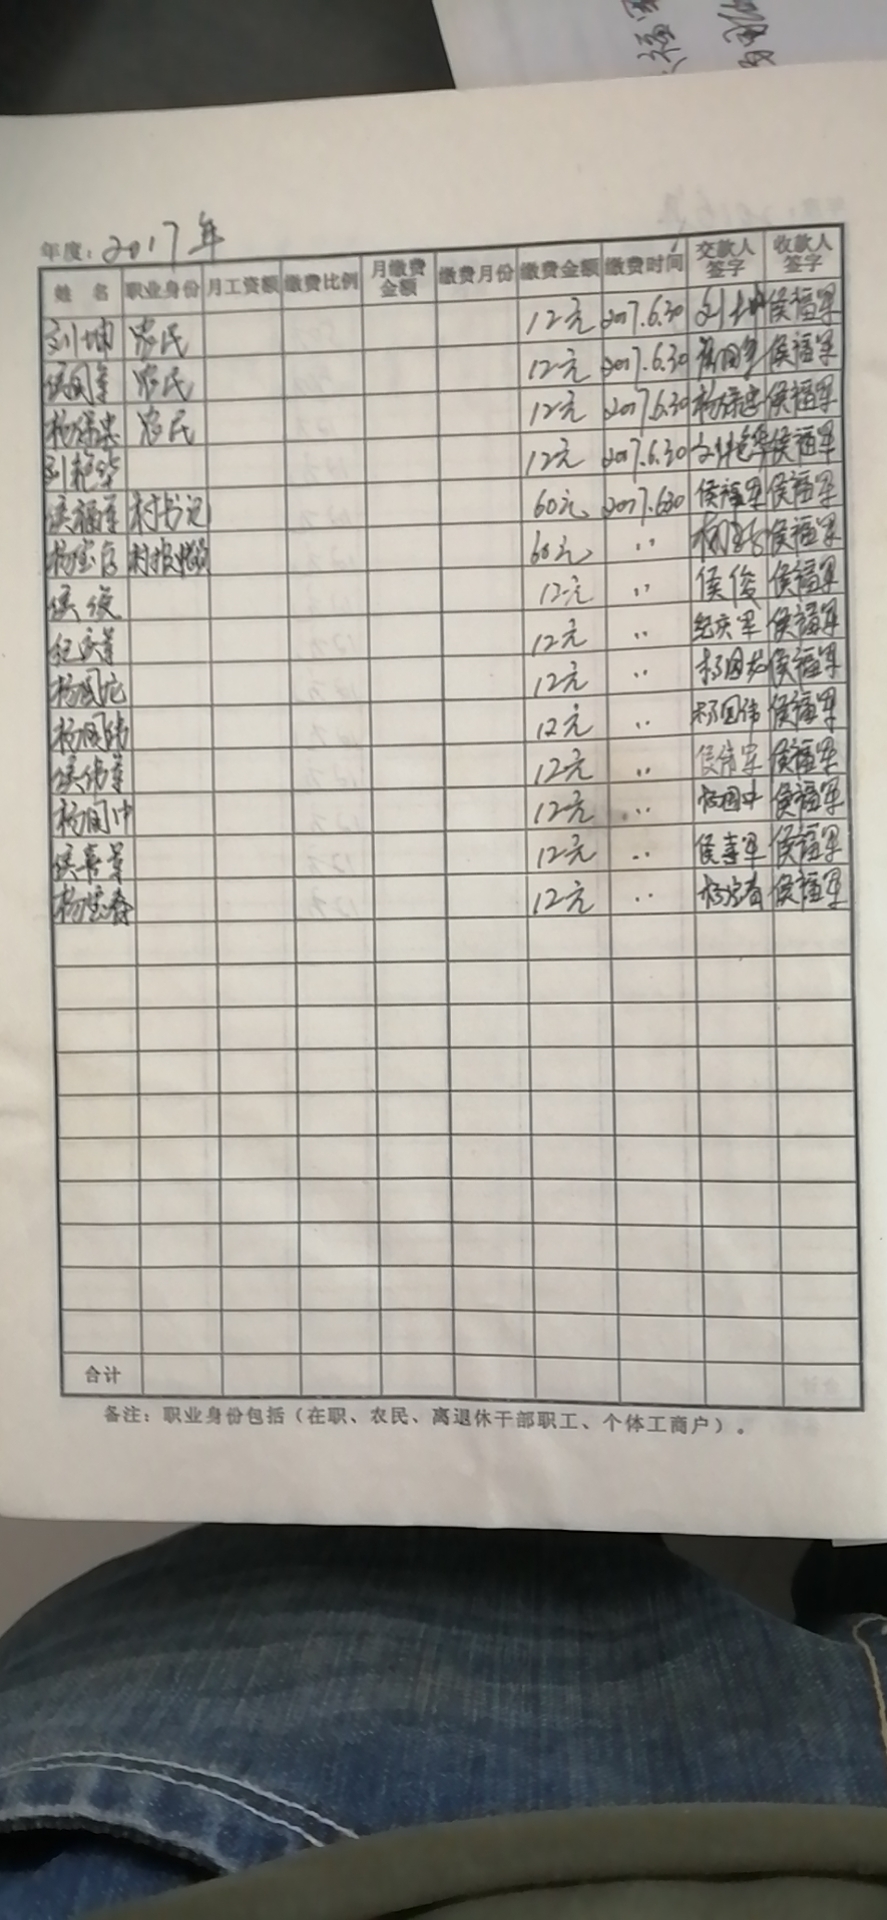 年度：2017年
姓 名 职业身份 月工资额 缴费比例 月缴费金额 缴费月份 缴费金额 缴费时间 交款人签字 收款人签字
刘坤 农民 12元 2017.6.30 刘坤 侯福军
侯国军 农民 12元 2017.6.30 侯福军
杨保忠 农民 12元 2017.6.30 杨保忠 侯福军
刘艳华 12元 2017.6.30 刘艳华 侯福军
侯福军 村书记 60元 2017.6.30 侯福军 侯福军
杨宝存 60元 〃 侯福军
侯俊 12元 〃 侯俊 侯福军
纪庆军 12元 〃 纪庆军 侯福军
杨国 12元 〃 杨国 侯福军
杨国伟 12元 〃 杨国伟 侯福军
侯伟军 12元 〃 侯伟军 侯福军
杨国中 12元 〃 杨国中 侯福军
侯喜军 12元 〃 侯喜军 侯福军
杨宝春 12元 〃 杨宝春 侯福军
合计
备注：职业身份包括（在职、农民、离退休干部职工、个体工商户）。